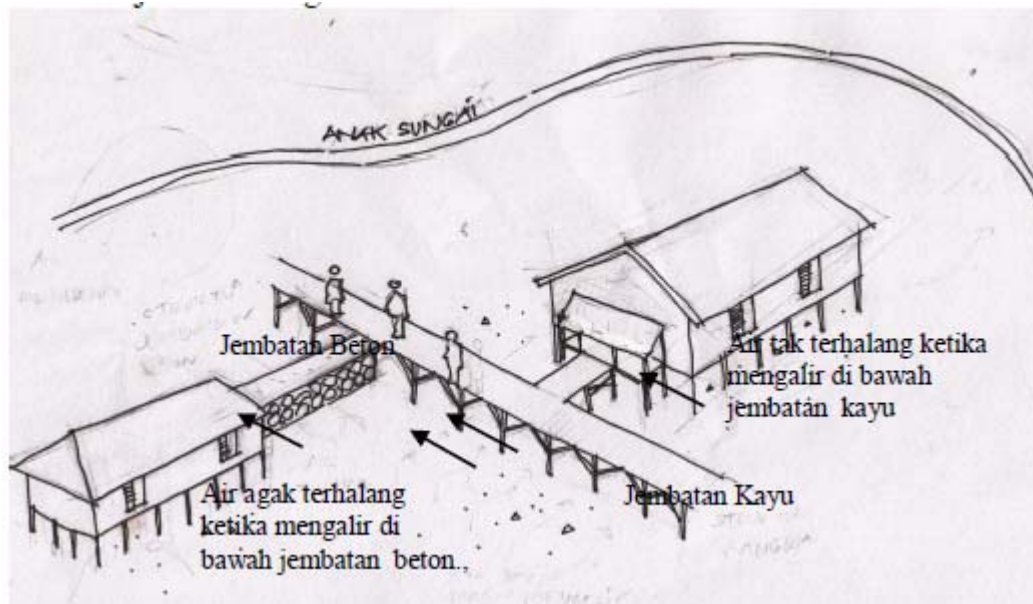 ANAK SUNGAI
Jembatan Beton
Air tak terhalang ketika
mengalir di bawah
jembatan kayu
Jembatan Kayu
Air agak terhalang
ketika mengalir di
bawah jembatan beton.,